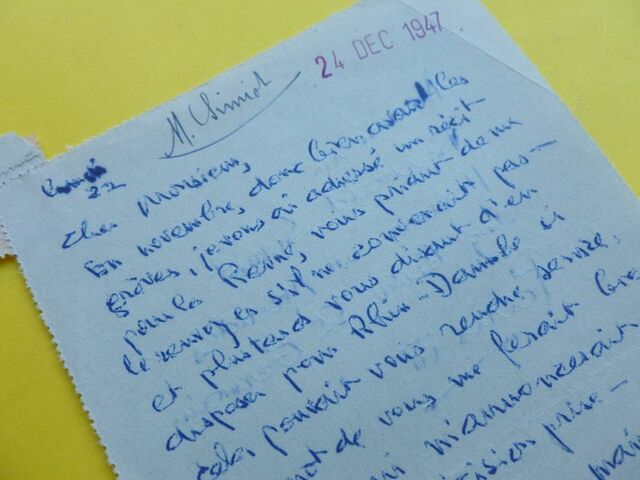 24 DEC 1947
M.
lundi
22
Cher Monsieur,
En novembre, donc bien avant les
grèves, je vous ai adressé un récit
pour la Revue, vous priant de me
le renvoyer s'il ne convenait pas —
et plus tard vous disant d'en
disposer pour Rhin-Danube si
cela pouvait vous rendre service.
mot de vous me ferait
qui m'annoncerait
prise —